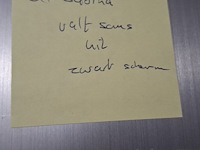 valt soms
uit
zwart scherm